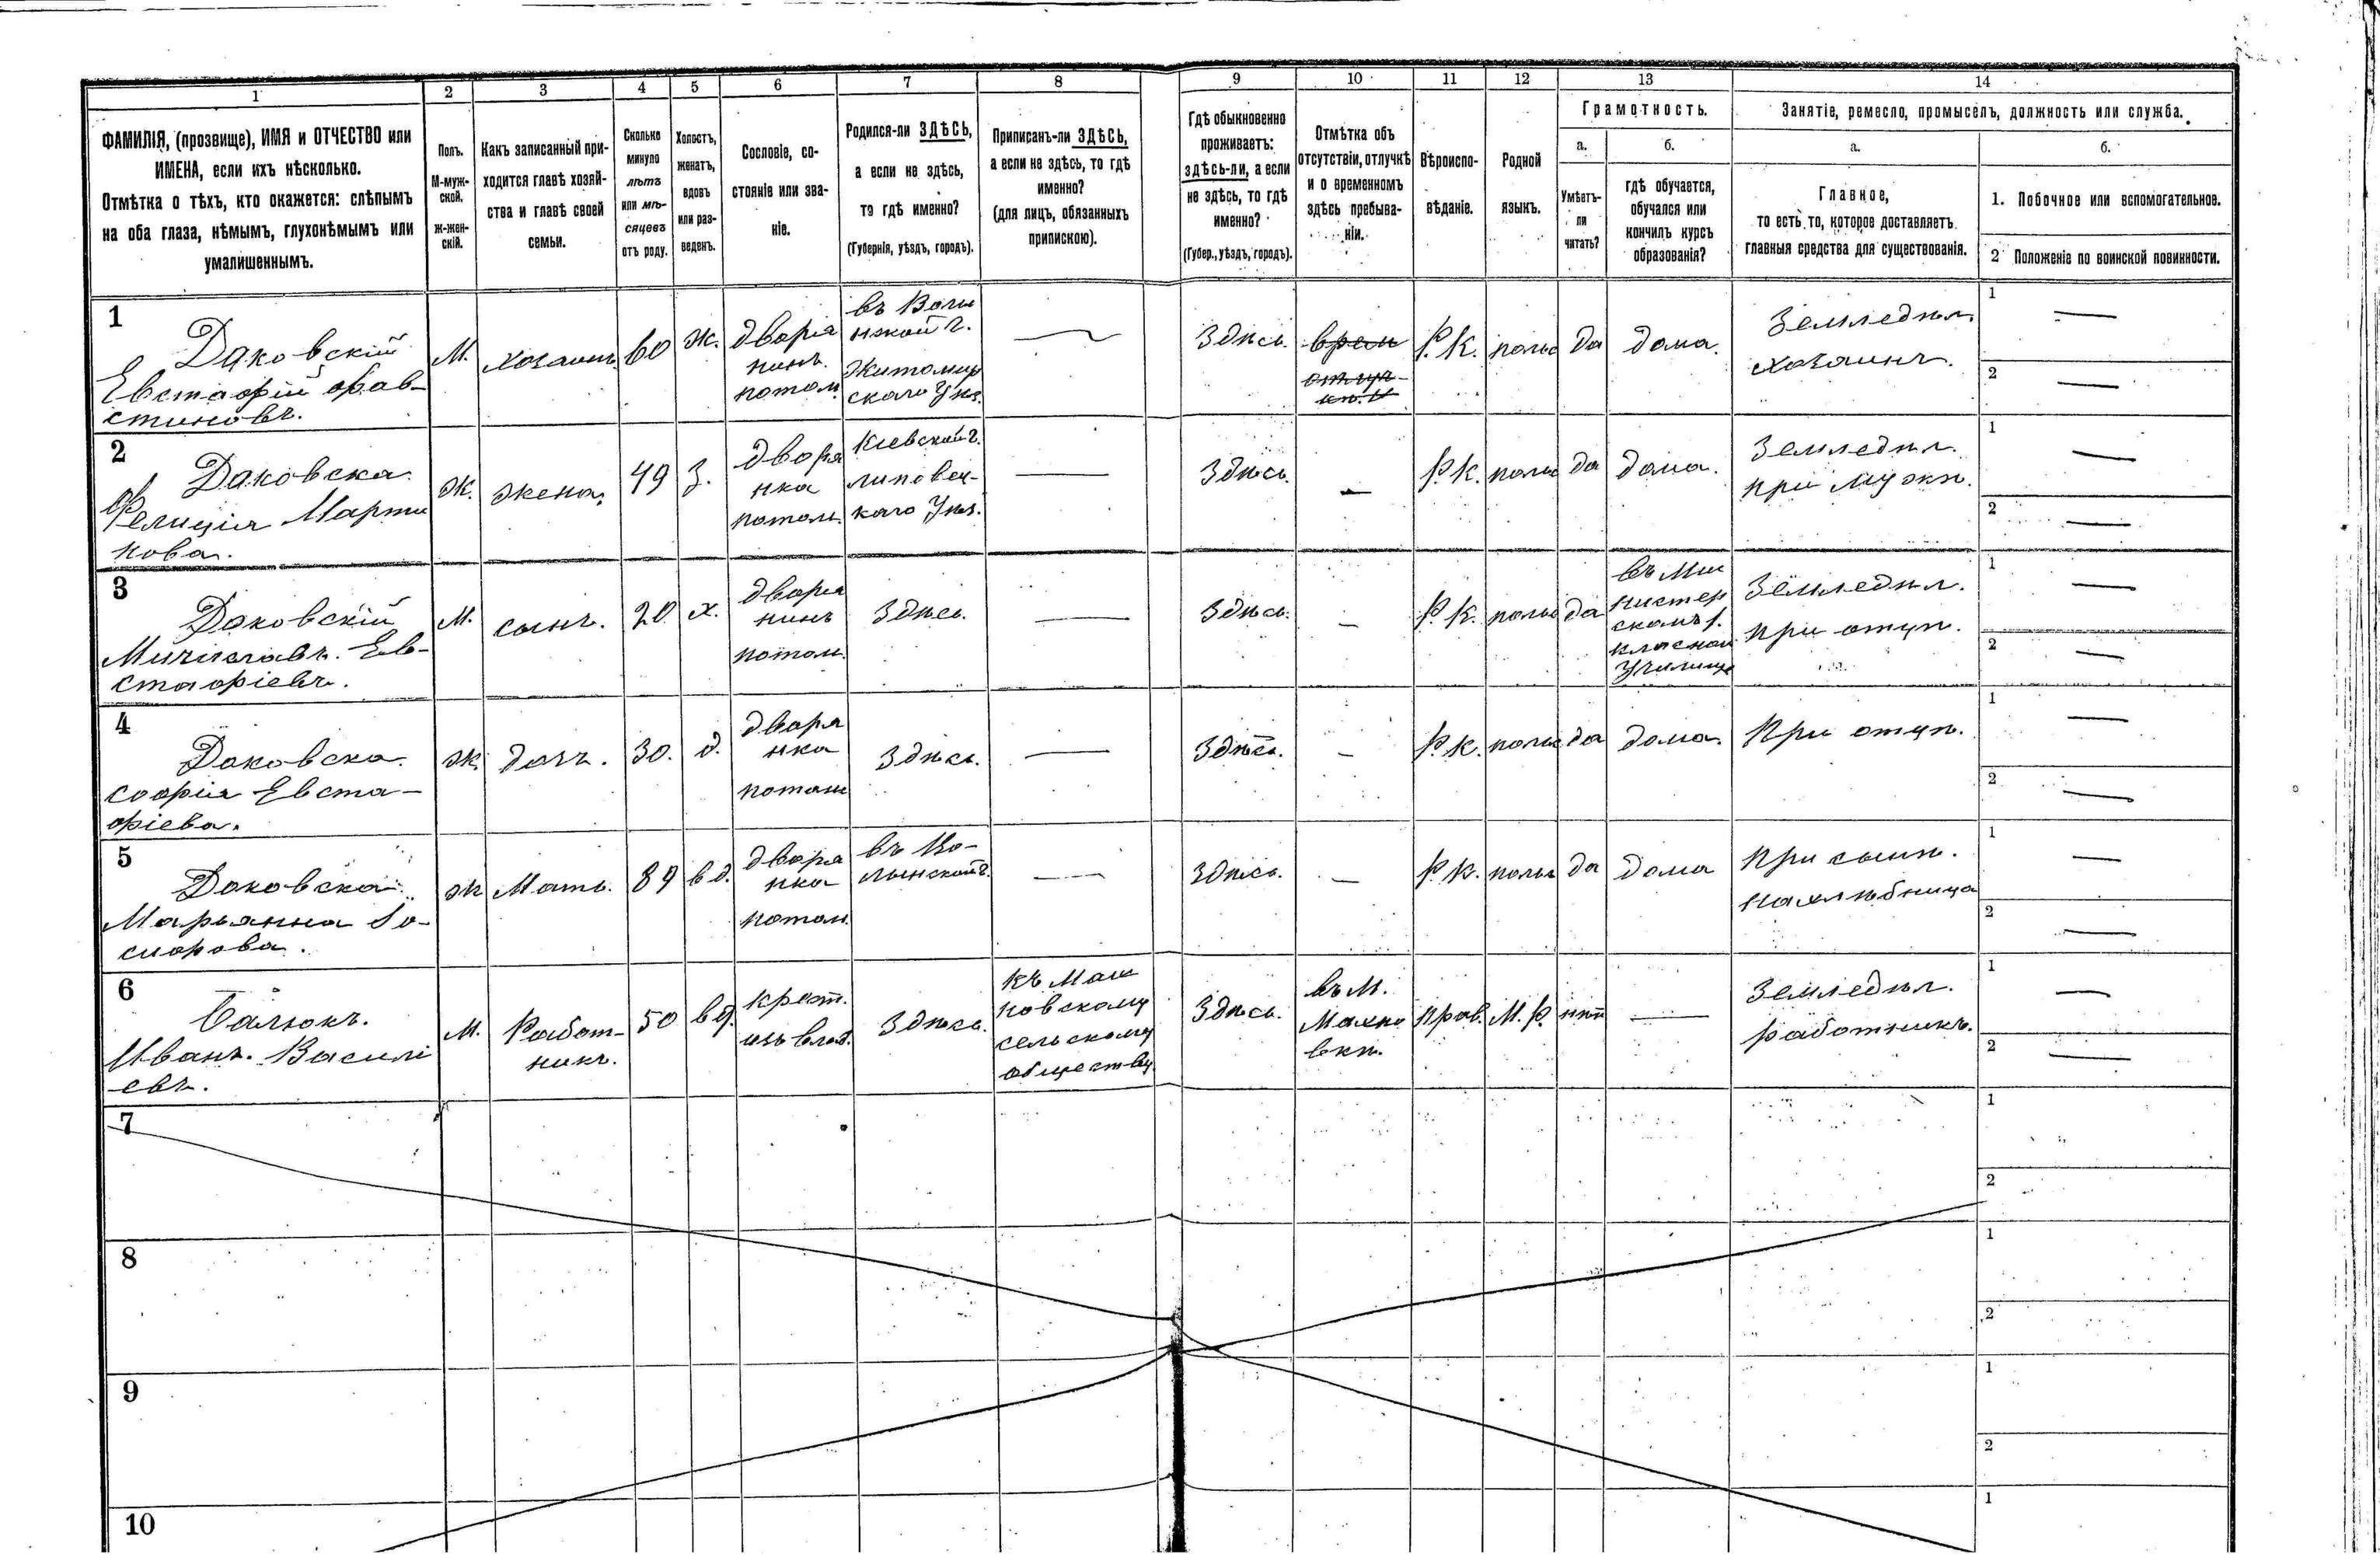 1
2
3
4
5
6
7
8
9
10
11
12
13
14
ФАМИЛІЯ, (прозвище), ИМЯ и ОТЧЕСТВО или
ИМЕНА, если ихъ нѣсколько.
Отмѣтка о тѣхъ, кто окажется: слѣпымъ
на оба глаза, нѣмымъ, глухонѣмымъ или
умалишеннымъ.
Полъ.
М-муж-
ской.
ж-жен-
скій.
Какъ записанный при-
ходится главѣ хозяй-
ства и главѣ своей
семьи.
Сколько
минуло
лѣтъ
или мѣ-
сяцевъ
отъ роду.
Холостъ,
женатъ,
вдовъ
или раз-
веденъ.
Сословіе, со-
стояніе или зва-
ніе.
Родился-ли ЗДѢСЬ,
а если не здѣсь,
то гдѣ именно?
(Губернія, уѣздъ, городъ).
Приписанъ-ли ЗДѢСЬ,
а если не здѣсь, то гдѣ
именно?
(для лицъ, обязанныхъ
припискою).
Гдѣ обыкновенно
проживаетъ:
здѣсь-ли, а если
не здѣсь, то гдѣ
именно?
(Губер., уѣздъ, городъ).
Отмѣтка объ
отсутствіи, отлучкѣ
и о временномъ
здѣсь пребыва-
ніи.
Вѣроиспо-
вѣданіе.
Родной
языкъ.
Грамотность.
а.
Умѣетъ-
ли
читать?
б.
гдѣ обучается,
обучался или
кончилъ курсъ
образованія?
Занятіе, ремесло, промыселъ, должность или служба.
а.
Главное,
то есть то, которое доставляетъ
главныя средства для существованія.
б.
1. Побочное или вспомогательное.
2 Положеніе по воинской повинности.
1
Даковскій
Евстафій Фав-
стиновъ.
М.
хозаинъ
60
Ж.
дворя
нинъ
потом.
въ Волы
нской г.
Житомир
скаго Уѣз.
—
Здѣсь.
врем
отлуч-
Р. К.
польс
да
дома.
Земледѣл.
хозаинъ.
1 —
2 —
2
Даковска
Фелиція Марти
нова.
ж.
жена.
49
З.
дворя
нка
потом.
Кіевской г.
липовец-
каго Уѣз.
—
Здѣсь.
—
Р. К.
польс
да
дома.
Земледѣл.
при мужѣ.
1 —
2 —
3
Даковскій
Мичиславъ. Ев-
стафіевъ.
М.
сынъ.
20
х.
дворя
нинъ
потом.
Здѣсь.
—
Здѣсь.
—
Р. К.
польс
да
въ Ми
нистер
скомъ 1.
класном
Училище
Земледѣл.
при отцѣ.
1 —
2 —
4
Даковска
софія Евста-
фіева.
ж.
дочь.
30.
д.
дворя
нка
потом
Здѣсь.
—
Здѣсь.
—
Р. К.
польс
да
дома.
При отцѣ.
1 —
2 —
5
Даковска
Марьянна Іо-
сифова.
ж
Мать.
89
вд.
дворя
нка
потом.
въ Во-
лынской г.
—
Здѣсь.
—
Р. К.
польс
да
дома
При сынѣ.
нахлѣбница
1 —
2 —
6
Балюкъ.
Иванъ. Василі
евъ.
М.
Работ-
никъ.
50
вд.
крест.
изъ влад.
Здѣсь.
къ Маш
новскому
сельскому
обществу.
Здѣсь.
въ М.
Махно
вкѣ.
прав.
М. Р.
нѣт
—
Земледѣл.
работникъ.
1 —
2 —
7
1
2
8
1
2
9
1
2
10
1